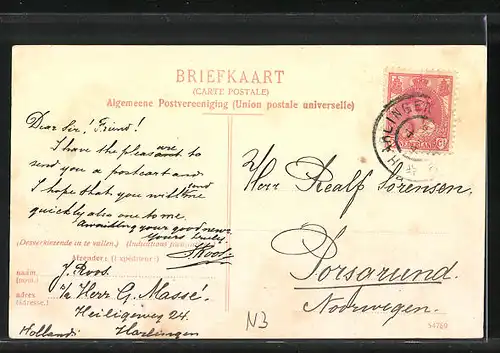 BRIEFKAART
(CARTE POSTALE)
Algemeene Postvereeniging (Union postale universelle)
HARLINGEN
Dear Sir! Friend!
I have the pleasure to
send you a postcart and
I hope that you will send
quickly also one to me.
Awaiting your good news
Yours truly,
JRoos
Herr Realf Sörensen,
Porsgrund.
Noorwegen.
(Desverkiezende in te vullen.)
Afzender: (Expéditeur:)
naam, J. Roos.
(nom.)
adres p/a Herr G. Massé.
(adresse.) Heiligeweg 24.
Holland: Harlingen
N3